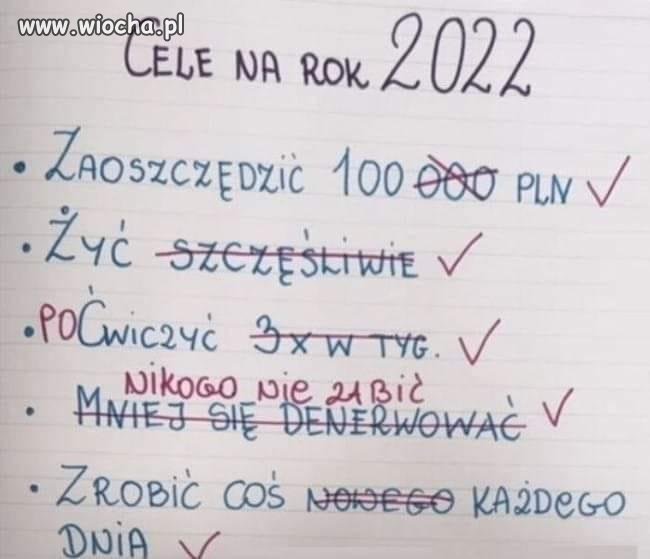 www.wiocha.pl
CELE NA ROK 2022
• ZAOSZCZĘDZIĆ 100 000 PLN ✓
• ŻYĆ SZCZĘŚLIWIE ✓
• POĆWICZYĆ 3 X W TYG. ✓
NIKOGO NIE ZABIĆ
• MNIEJ SIĘ DENERWOWAĆ ✓
• ZROBIĆ COŚ NOWEGO KAŻDEGO
DNIA ✓